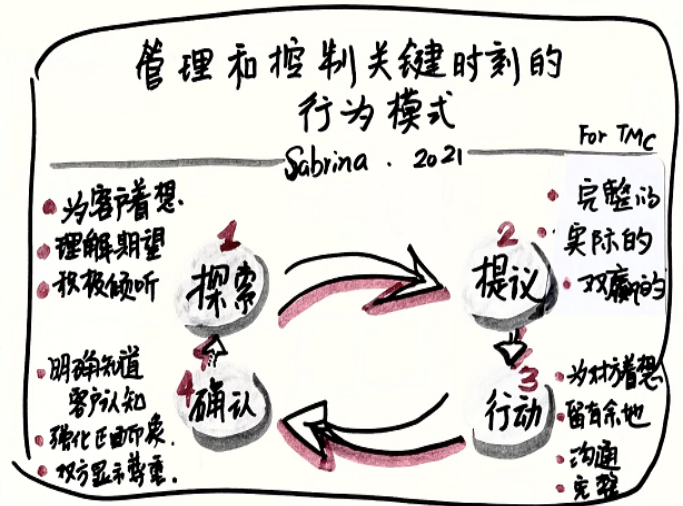 管理和控制关键时刻的
行为模式
For TMC
Sabrina . 2021
为客户着想.
理解期望
积极倾听
1
探索
2
提议
完整的
实际的
双赢的
明确知道
客户认知
强化正面印象.
双方显示尊重.
4
确认
3
行动
为对方着想
留有余地
沟通
完整